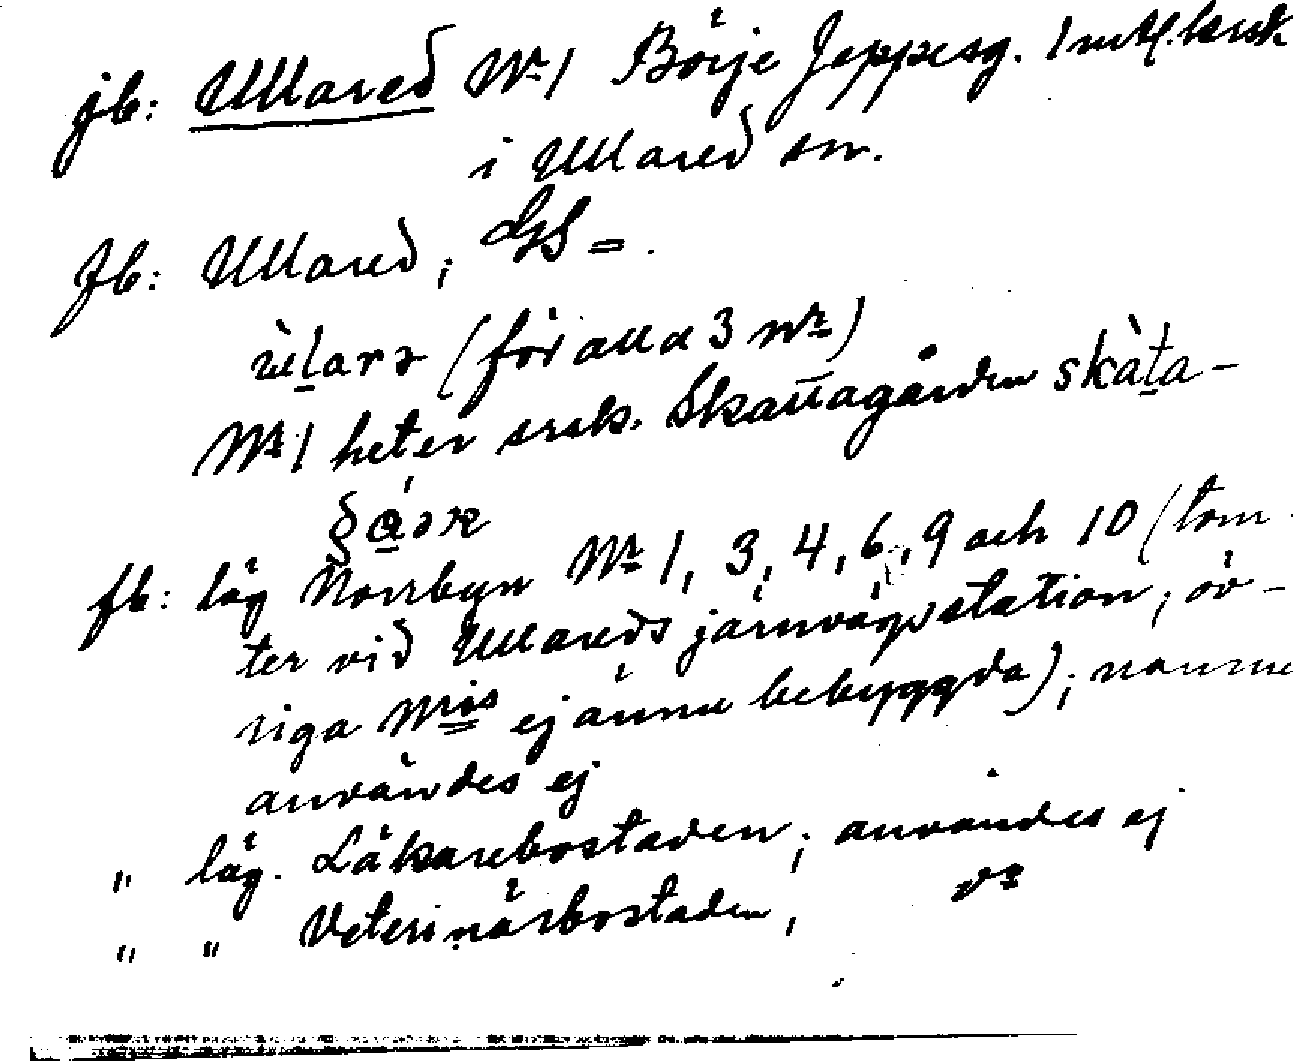 jb: Ullared Nr 1 Börje Jeppesg. 1 mtl.
i Ullared sn.
Jb: Ullared, GS =.
(för alla 3 nr)
Nr 1 heter Skattagården
fb: läg Norrbyn Nr 1, 3, 4, 6, 9 och 10 (tom-
ter vid Ullareds järnvägsstation, öv-
riga Nris ej ännu bebyggda); namne
användes ej
" läg. Läkarebostaden; användes ej
" " Veterinärbostaden,